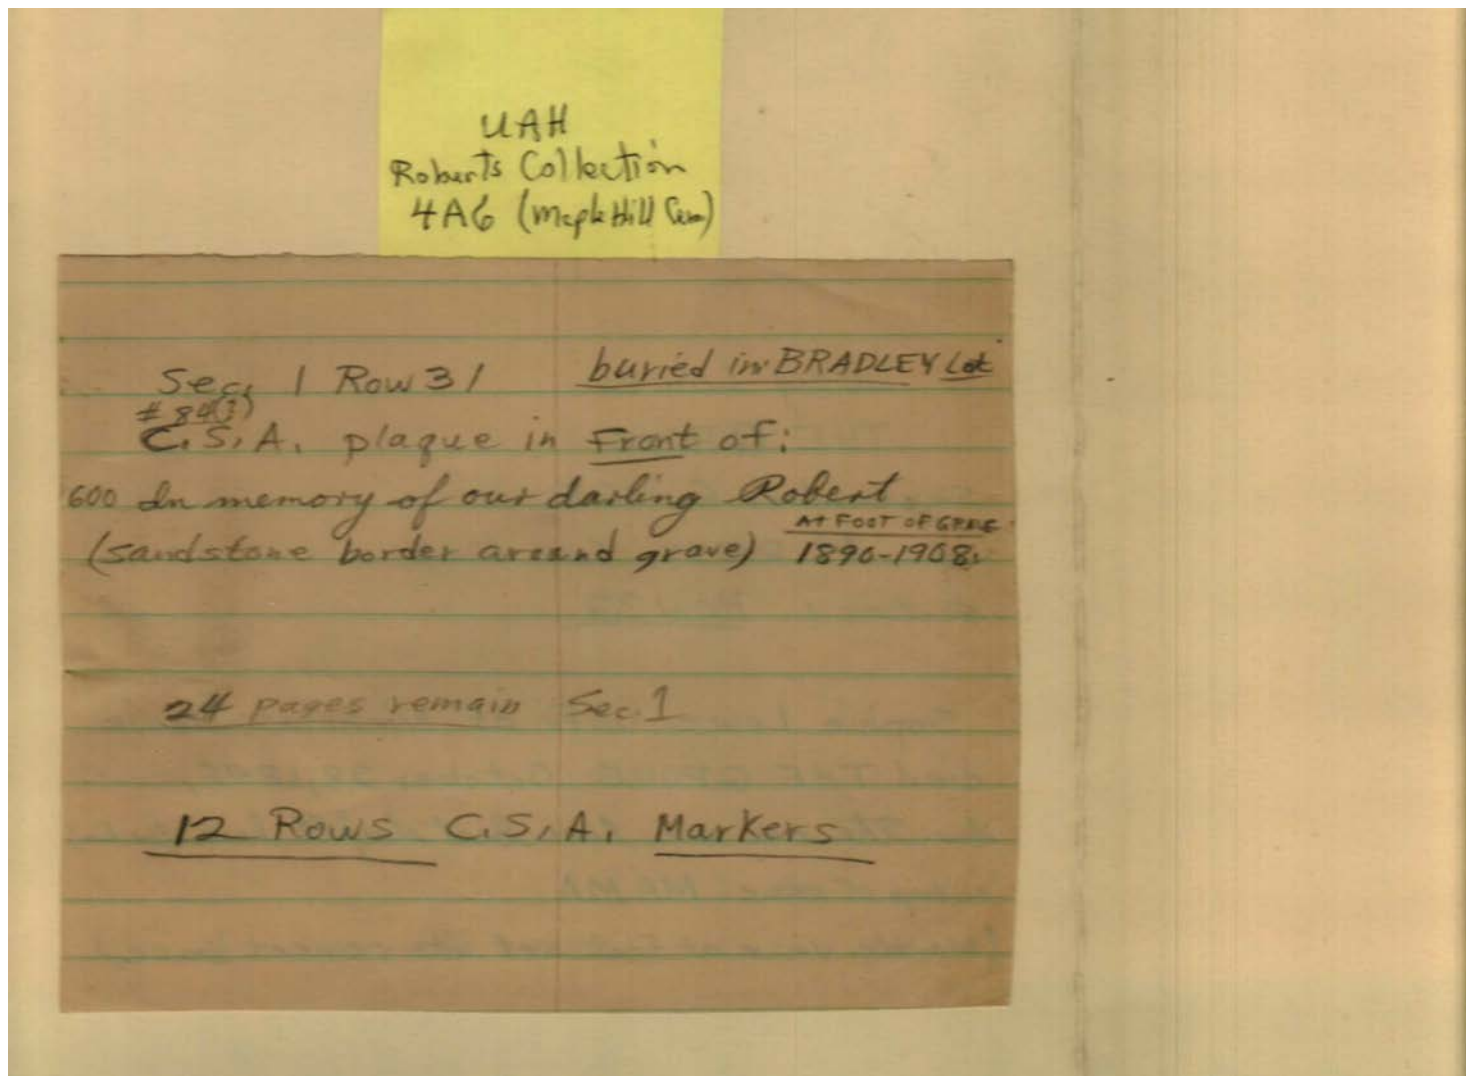 UAH
Roberts Collection
4A6 (Maple Hill Cem)
Sec. 1 Row 31 buried in BRADLEY Lot
# 84(?)
C.S.A. plaque in Front of:
600 In memory of our darling Robert
AT FOOT OF GRAVE
(sandstone border around grave) 1890-1908
24 pages remain Sec. 1
12 Rows C.S.A. Markers